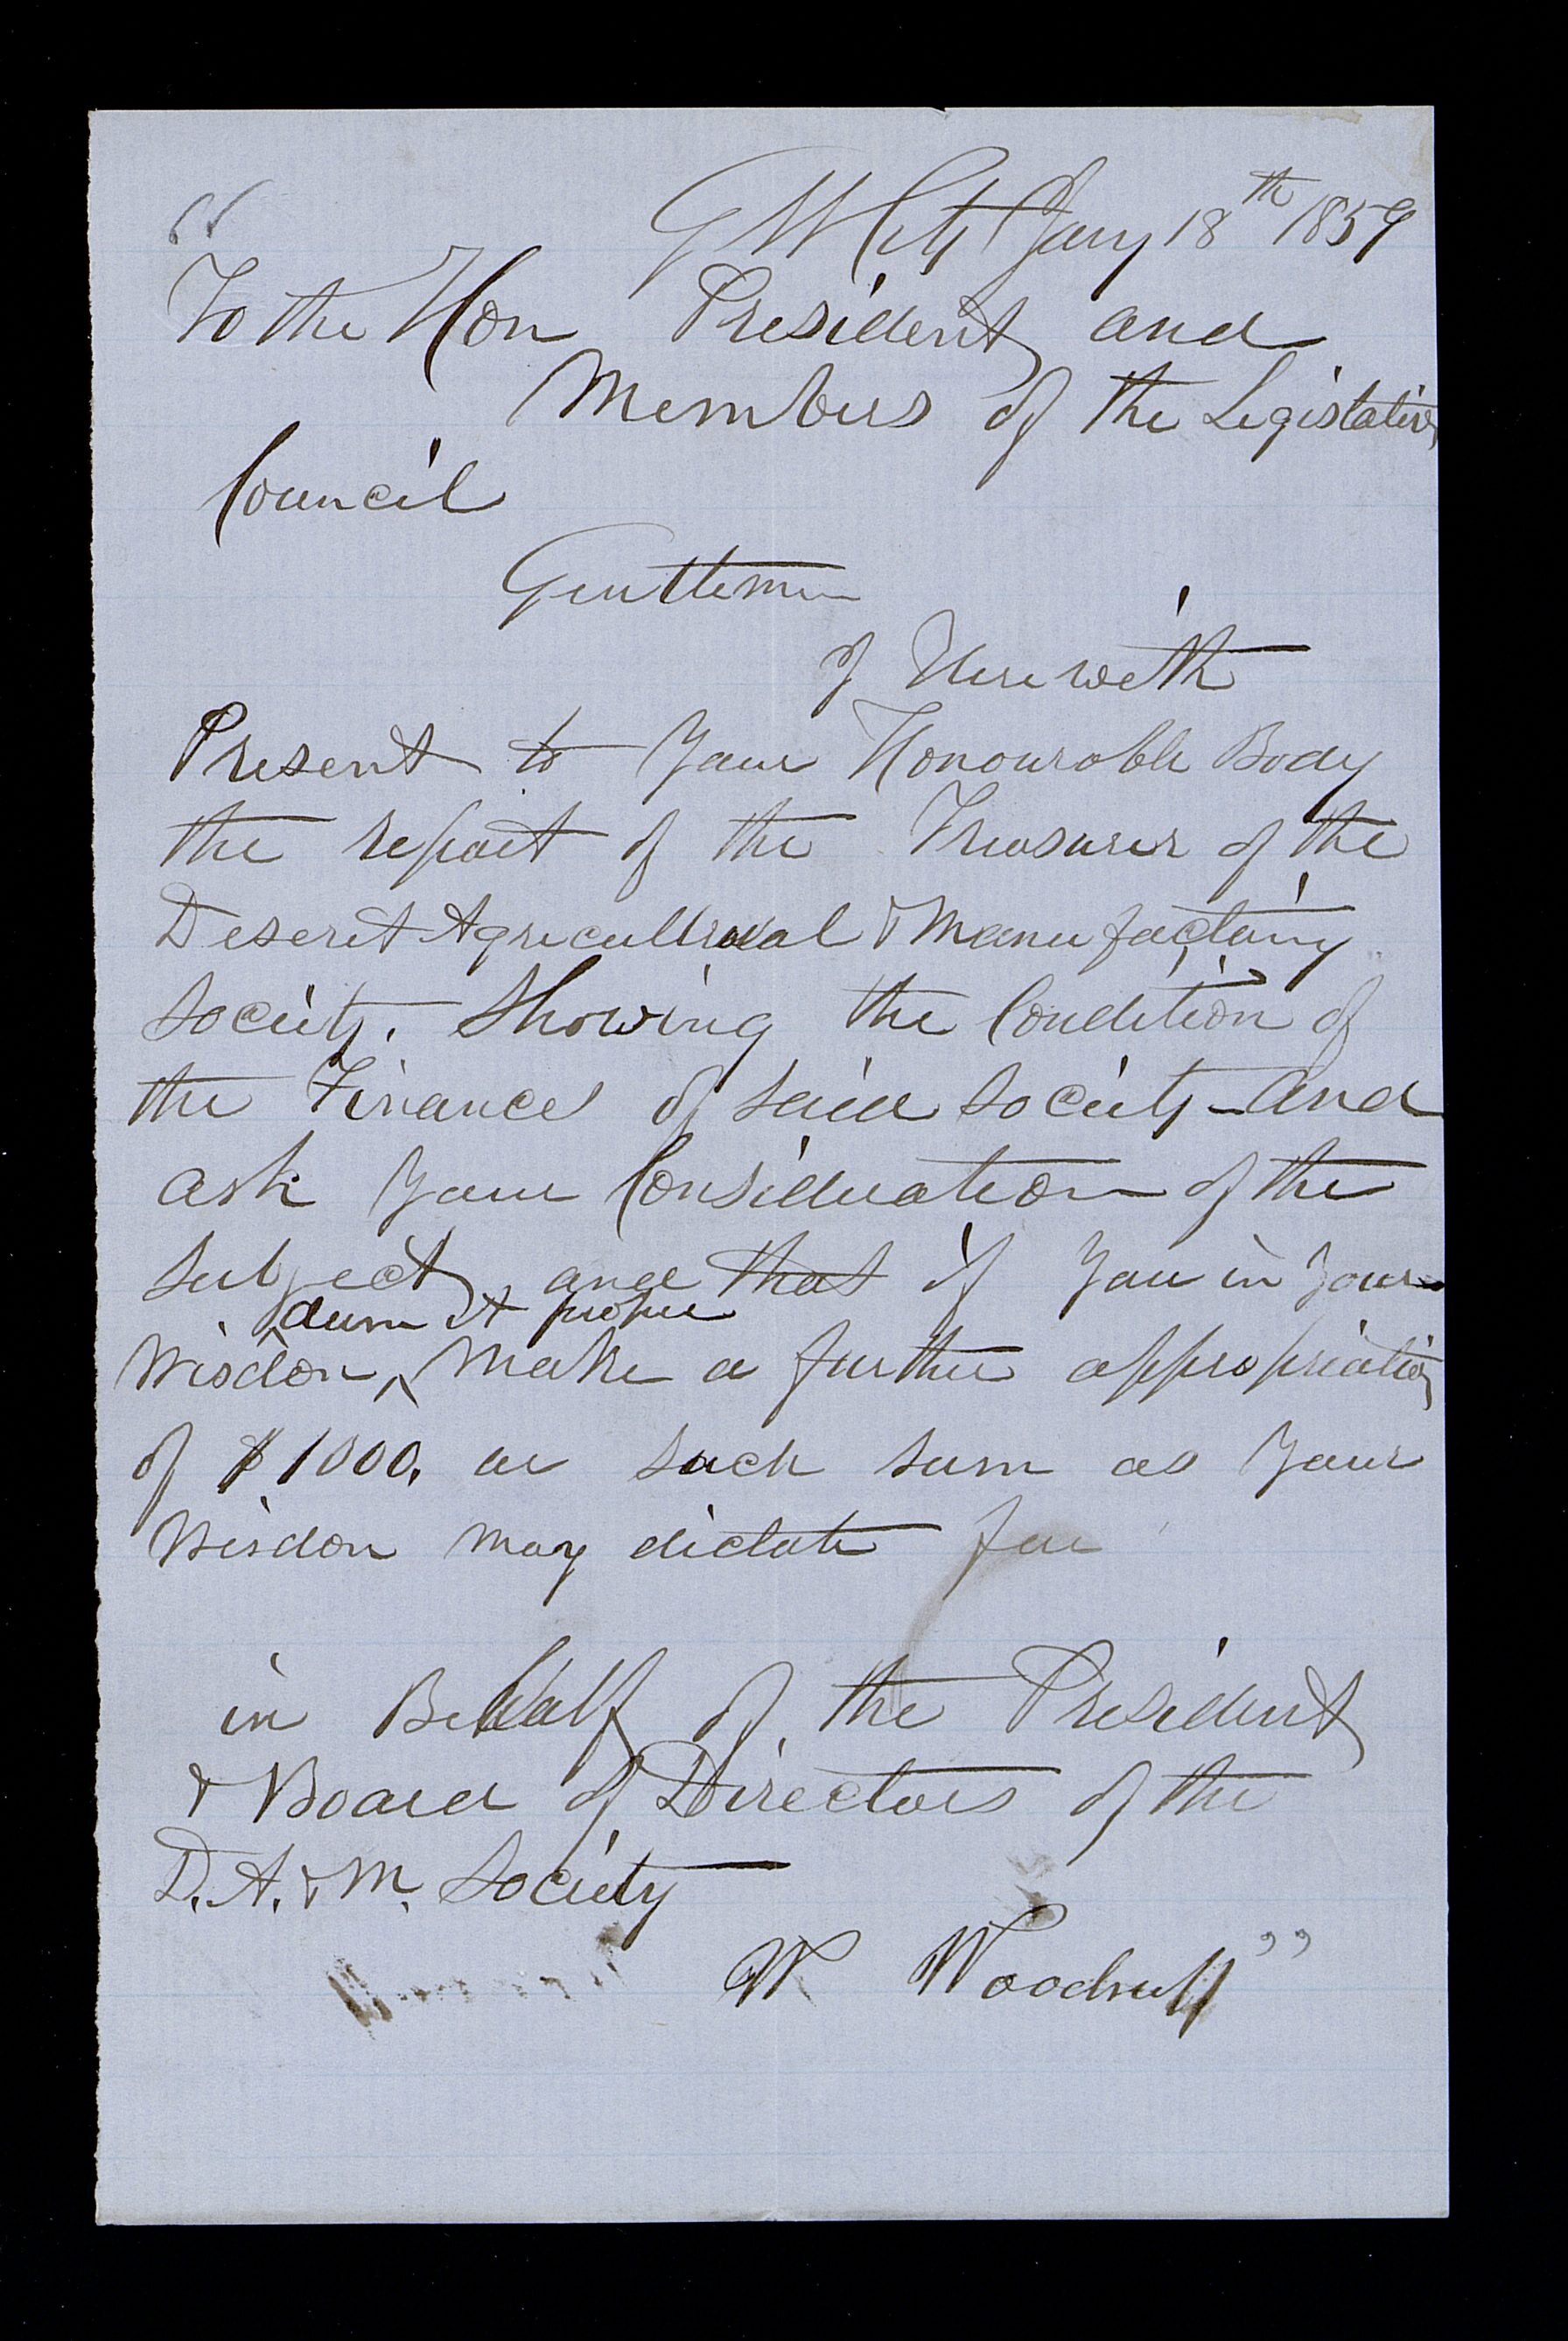 “
G S L City Jany 18th 1859
To the Hon President and
Members of the Legislative
Council
Gentlemen
I Herewith
Present to Your Honourable Body
the report of the Treasurer of the
Deseret Agricultural & Manufactoring
Society. Showing the Condition of
the Finance of said Society and
ask Your Consideration of the
subject, and that if You in Your
deem it proper
Wisdom, ^ Make a further appropriation
of $1000. or such sum as Your
Wisdom may dictate for
in Behalf of the President
& Board of Directors of the
D. A. & M. Society
W Woodruff ”